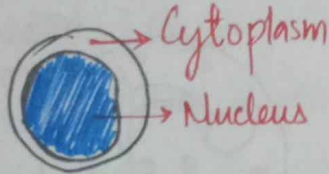 Cytoplasm
Nucleus